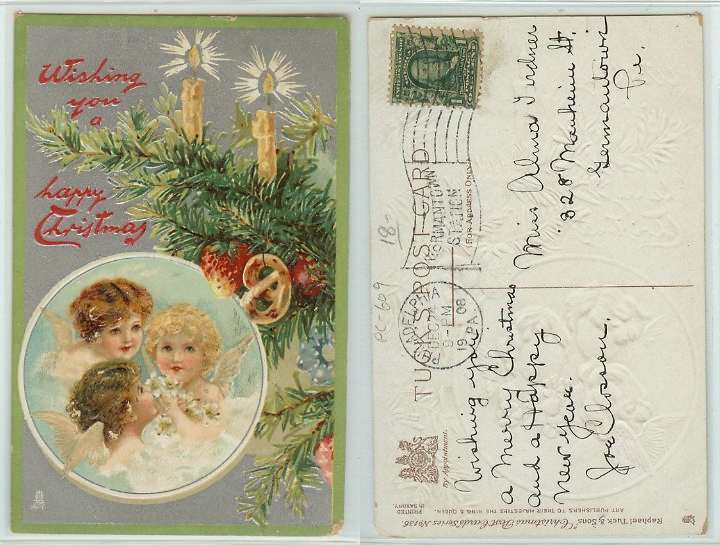 Wishing
you
a
happy
Christmas
TUCK'S POST CARD
(For Address Only)
GERMANTOWN
STATION
PHILADELPHIA
DEC 24
9-PM
1908
PA.
18-
PC-609
Miss Alma Gerdner
328 Manheim St.
Germantown
Pa.
Wishing you
a Merry Christmas
and a Happy
New Year.
Joe Closson.
By Appointment.
Raphael Tuck & Sons' "Christmas Post Cards Series No. 136
ART PUBLISHERS TO THEIR MAJESTIES THE KING & QUEEN.
PRINTED
IN SAXONY.